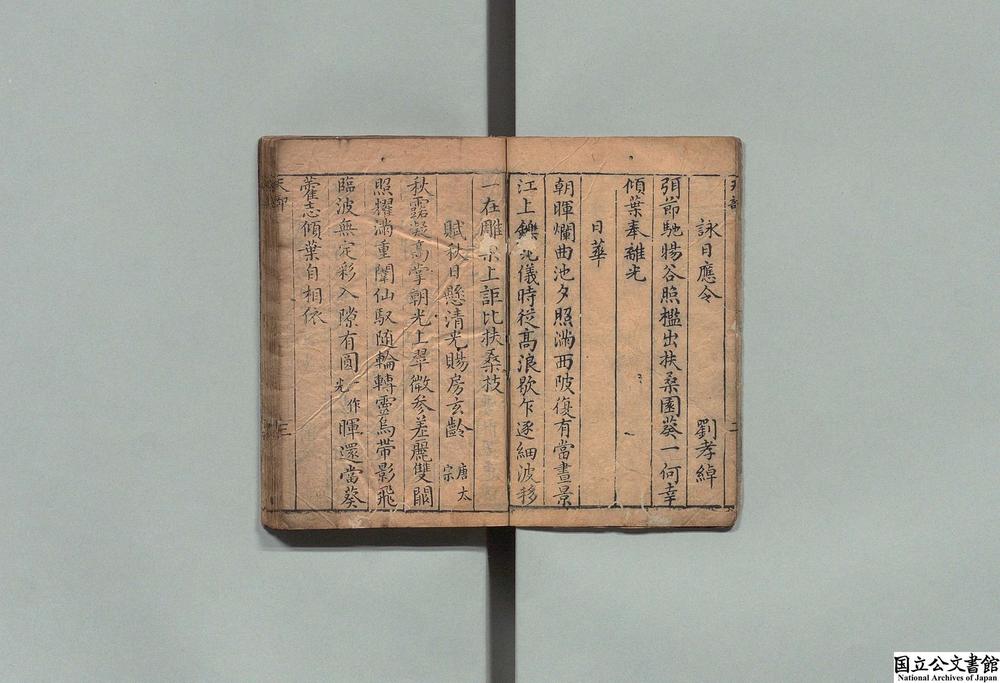 天部
二
詠日應令 劉孝綽
弭節馳暘谷照檻出扶桑園葵一何幸
傾葉奉離光
日華
朝暉爛曲池夕照滿西陂復有當晝景
江上鑠光儀時從高浪歇乍逐細波移
一在雕梁上詎比扶桑枝
賦秋日懸清光賜房玄齡 唐太宗
秋露凝高掌朝光上翠微参差麗雙闕
照耀滿重闈仙馭隨輪轉靈烏帶影飛
臨波無定彩入隙有圓一作光暉還當葵
藿志傾葉自相依
天部
三
国立公文書館
National Archives of Japan